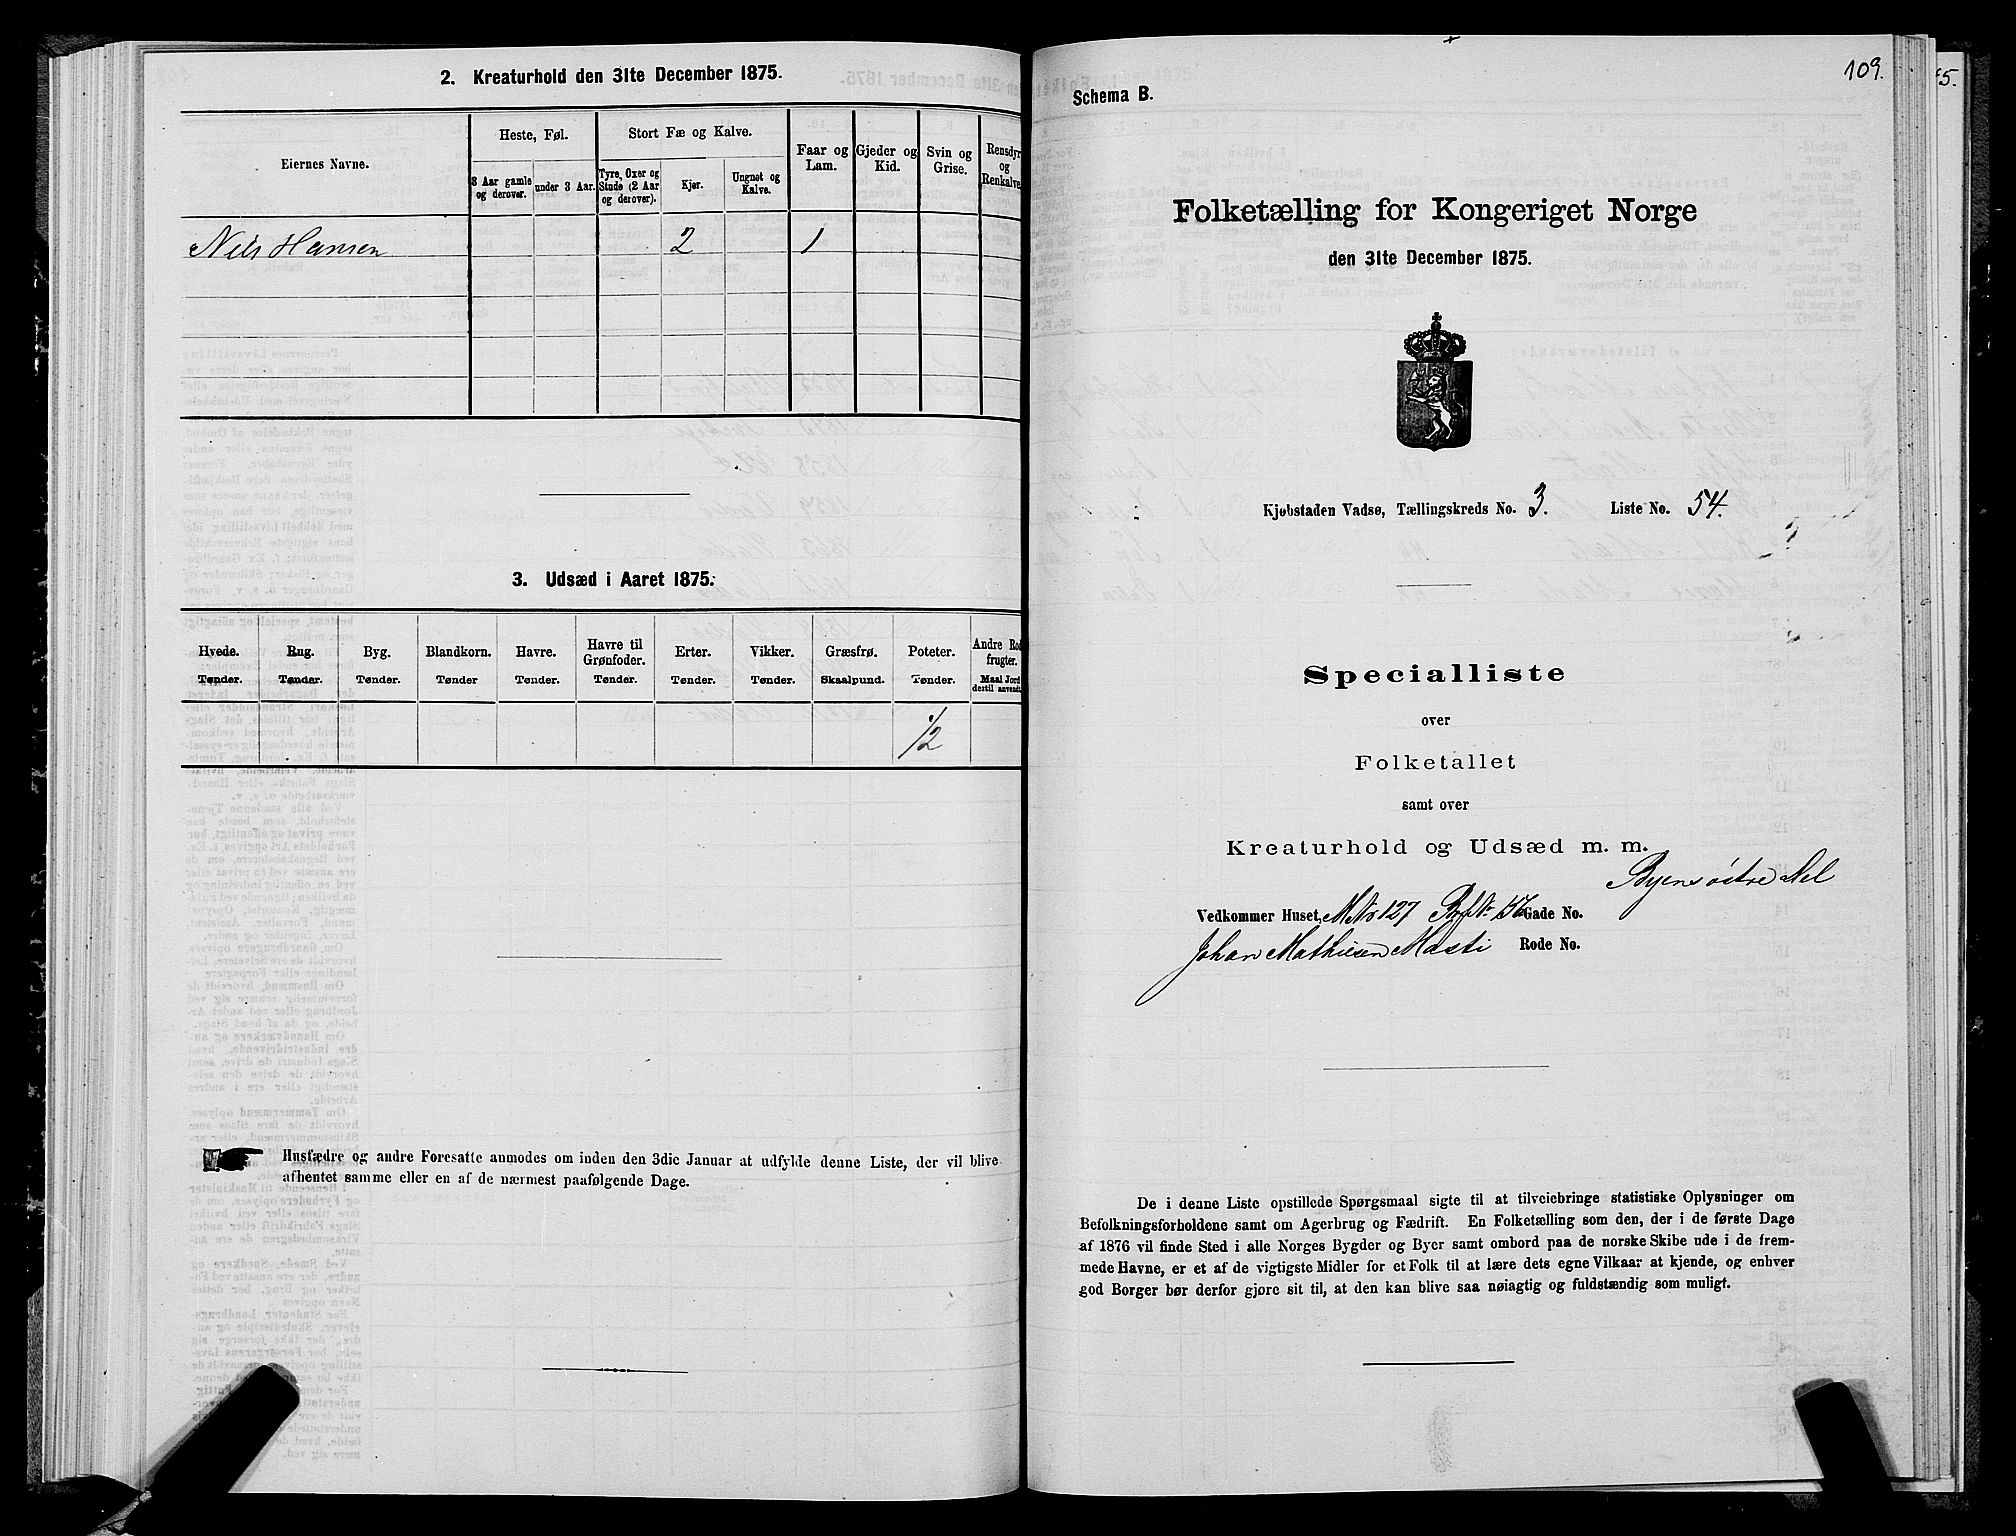 2. Kreaturhold den 31te December 1875.
Eiernes Navne.
Heste, Føl.
Stort Fæ og Kalve.
Faar og Lam.
Gjeder og Kid.
Svin og Grise.
Rensdyr og Renkalve.
3 Aar gamle og derover.
under 3 Aar.
Tyre, Oxer og Stude (2 Aar og derover).
Kjør.
Ungnøt og Kalve.
Niels Hansen 2 1
3. Udsæd i Aaret 1875.
Hvede. Rug. Byg. Blandkorn. Havre. Havre til Grønfoder. Erter. Vikker. Græsfrø. Poteter. Andre Rodfrugter.
Tønder. Tønder. Tønder. Tønder Tønder. Tønder. Tønder. Tønder. Skaalpund. Tønder. Maal Jord dertil anvendt.
1/2
Husfædre og andre Foresatte anmodes om inden den 3die Januar at udfylde denne Liste, der vil blive
afhentet samme eller en af de nærmest paafølgende Dage.
109.
5.
Schema B.
Folketælling for Kongeriget Norge
den 31te December 1875.
Kjøbstaden Vadsø, Tællingskreds No. 3. Liste No. 54.
Specialliste
over
Folketallet
samt over
Kreaturhold og Udsæd m. m.
Byens østre Del
Vedkommer Huset, M.No 127 Gade No.
Johan Mathiesen Masti Rode No.
De i denne Liste opstillede Spørgsmaal sigte til at tilveiebringe statistiske Oplysninger om
Befolkningsforholdene samt om Agerbrug og Fædrift. En Folketælling som den, der i de første Dage
af 1876 vil finde Sted i alle Norges Bygder og Byer samt ombord paa de norske Skibe ude i de frem-
mede Havne, er et af de vigtigste Midler for et Folk til at lære dets egne Vilkaar at kjende, og enhver
god Borger bør derfor gjøre sit til, at den kan blive saa nøiagtig og fuldstændig som muligt.